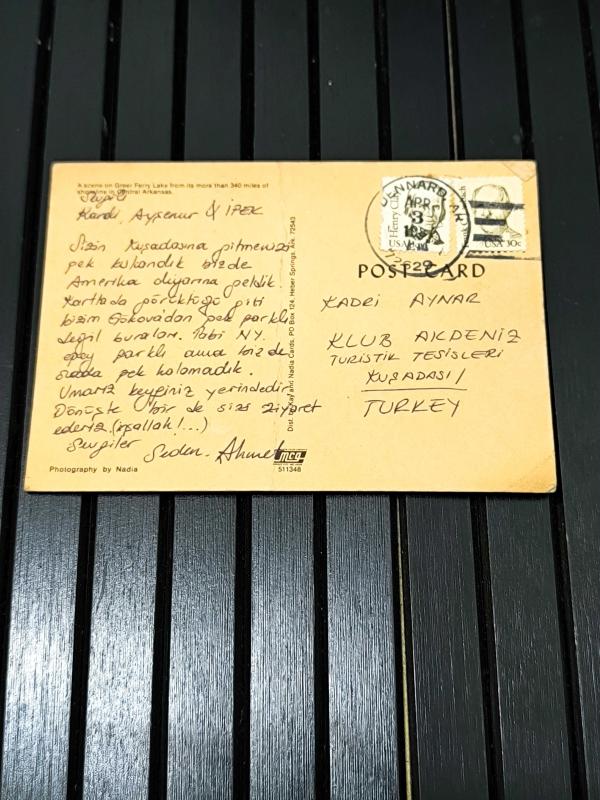 A scene on Greer Ferry Lake from its more than 340 miles of
shoreline in Central Arkansas.
Sevgili
Kadri, Ayşenur & İPEK
Sizin Kuşadasına gitmenize
pek kıskandık bizde
Amerika diyarına geldik.
Kartlada göreceğiniz gibi
bizim Gökova'dan pek farklı
değil buraları. Tabi NY.
epey farklı ama biz de
orada pek kalamadık.
Umarız keyfiniz yerindedir
Dönüşte bir de sizi ziyaret
ederiz. (inşallah!...)
Sevgiler
Seden - Ahmet
Photography by Nadia
Dist. by Kay and Nadia Cards, PO Box 124, Heber Springs, Ark. 72543
mcg
511348
DENNARD, AR
APR
3
72629
Henry Cl
USA
USA 30c
POST CARD
KADRİ AYNAR
KLUB AKDENİZ
TURİSTİK TESİSLERİ
KUŞADASI/
TURKEY